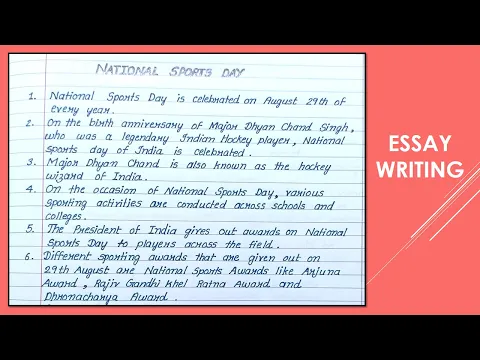 NATIONAL SPORTS DAY
1. National Sports Day is celebrated on August 29th of
every year.
2. On the birth anniversary of Major Dhyan Chand Singh,
who was a legendary Indian Hockey player, National
Sports day of India is celebrated.
3. Major Dhyan Chand is also known as the hockey
wizard of India.
4. On the occasion of National Sports Day, various
sporting activities are conducted across schools and
colleges.
5. The President of India gives out awards on National
Sports Day to players across the field.
6. Different sporting awards that are given out on
29th August are National Sports Awards like Arjuna
Award, Rajiv Gandhi Khel Ratna Award and
Dhronacharya Award.
ESSAY
WRITING